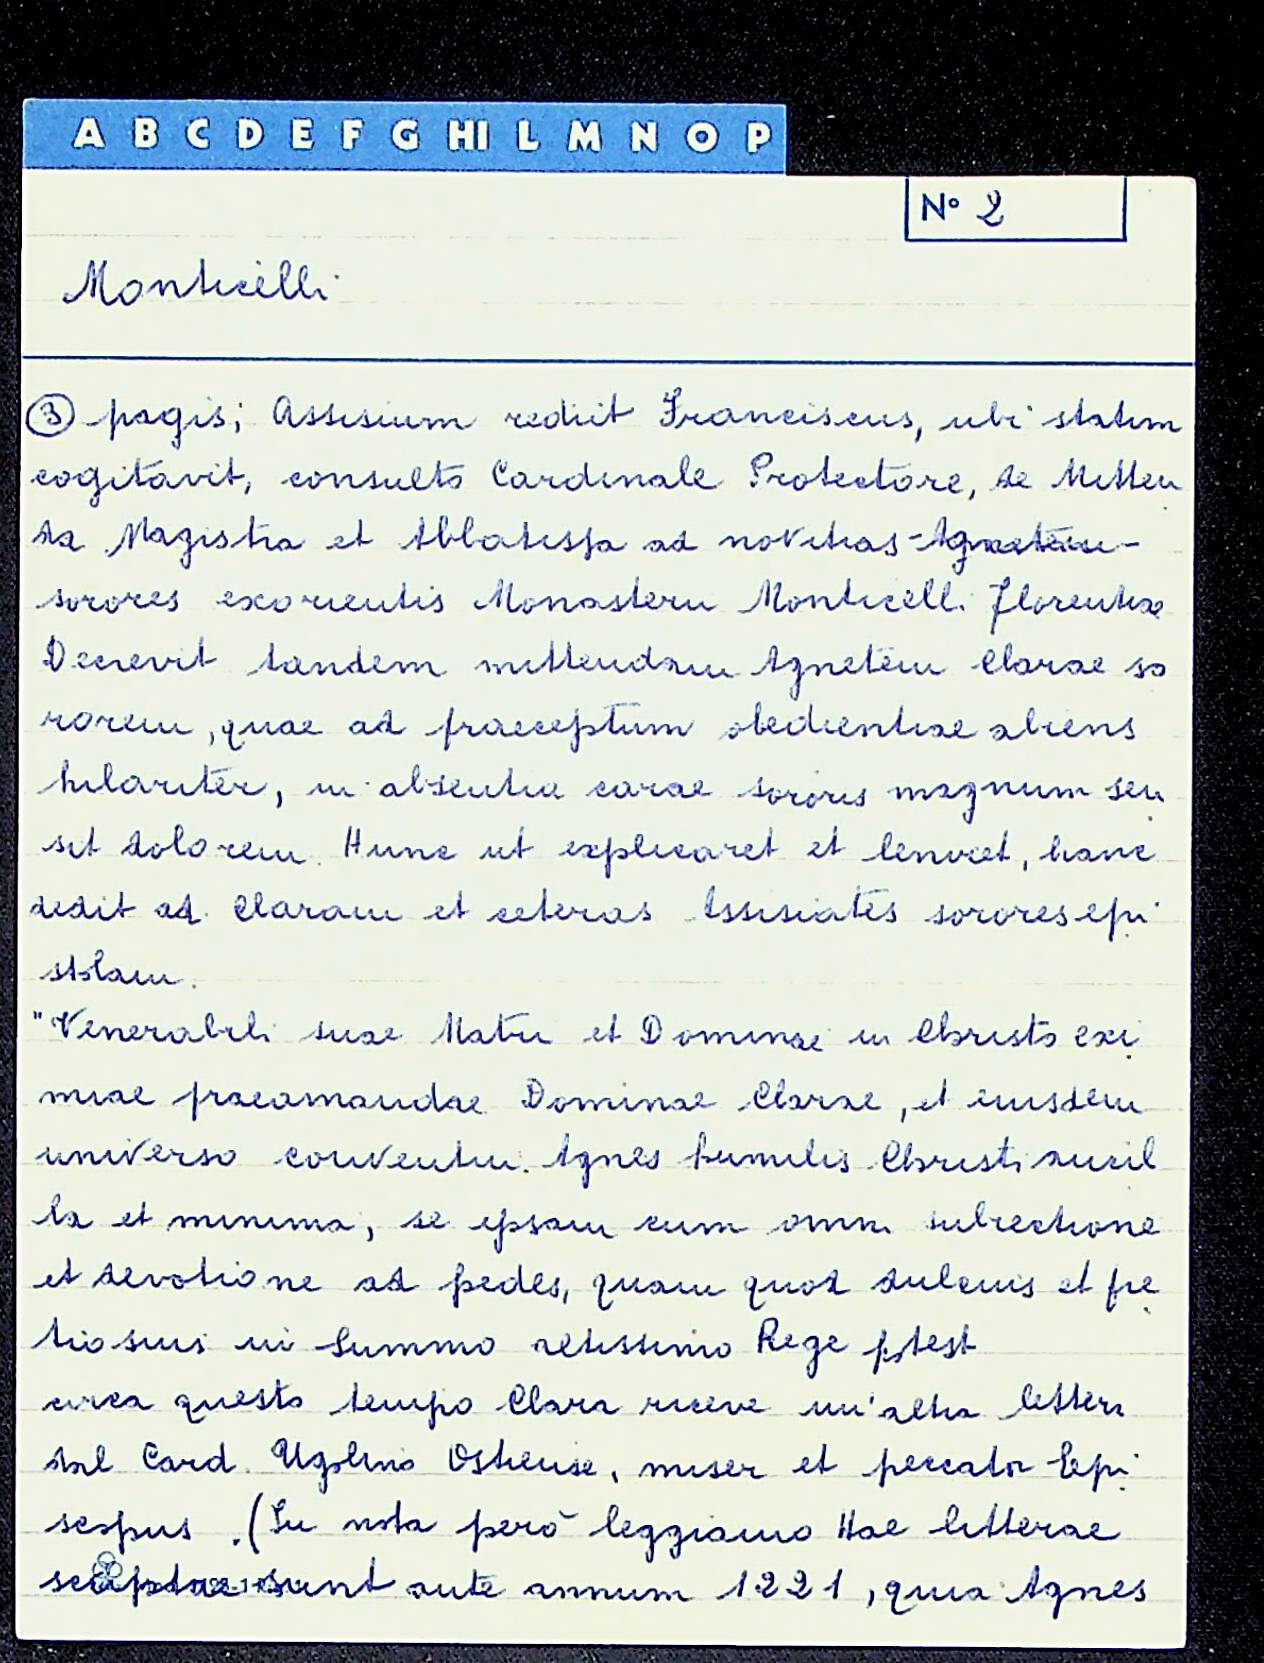 A B C D E F G HI L M N O P
N° 2
Monticelli
③ pagis; Assisium rediit Franciscus, ubi statim
cogitavit, consulto Cardinale Protectore, de Mitten
da Magistra et Abbatissa ad novitias - Agnetem -
sorores exorientis Monasterii Monticelli Florentiae
Decrevit tandem mittendam Agnetem Clarae so
rorem, quae ad praeceptum obedientiae abiens
hilariter, in absentia carae sororis magnum sen
sit dolorem. Hunc ut explicaret et leniret, hanc
dedit ad Claram et ceteras Assisiates sorores epi
stolam.
"Venerabili suae Matri et Dominae in Christo exi
miae praeamandae Dominae Clarae, et eiusdem
universo conventui. Agnes humilis Christi ancil
la et minima, se ipsam cum omni subiectione
et devotione ad pedes, quam quod dulcius et pre
tiosius in Summo altissimo Rege potest
circa questo tempo Clara riceve un'altra letter
dal Card. Ugolino Ostiense, miser et peccator Epi
scopus. (In nota però leggiamo Hae litterae
scriptae sunt ante annum 1221, quia Agnes